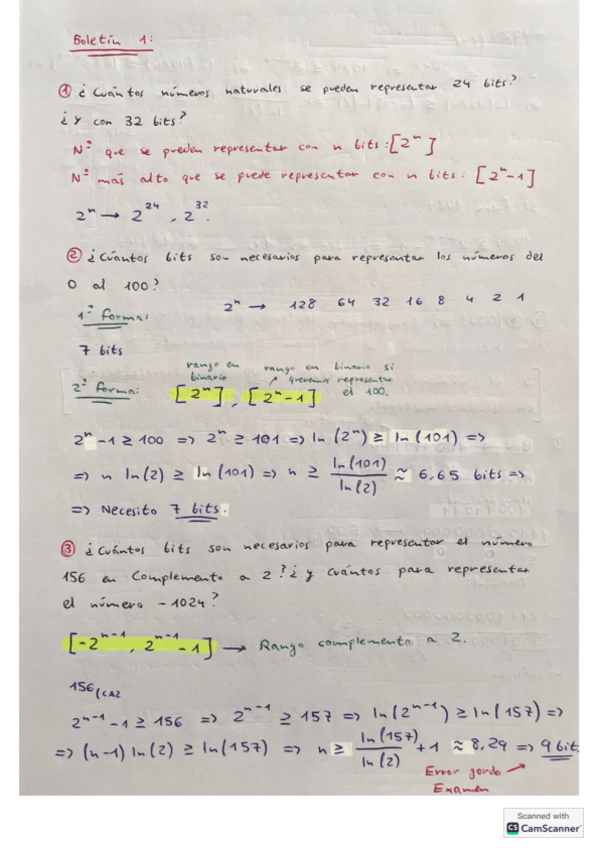 Boletín 1:
① ¿Cuántos números naturales se pueden representar 24 bits?
¿y con 32 bits?
Nº que se pueden representar con n bits: [2ⁿ]
Nº más alto que se puede representar con n bits: [2ⁿ-1]
2ⁿ → 2²⁴, 2³².
② ¿Cuántos bits son necesarios para representar los números del
0 al 100?
1ª forma:
2ⁿ → 128 64 32 16 8 4 2 1
7 bits
2ª forma:
rango en binario
rango en binario si
↗ queremos representar
el 100.
[2ⁿ], [2ⁿ-1]
2ⁿ-1 ≥ 100 => 2ⁿ ≥ 101 => ln(2ⁿ) ≥ ln(101) =>
=> n ln(2) ≥ ln(101) => n ≥ ln(101)/ln(2) ≈ 6,65 bits =>
=> Necesito 7 bits.
③ ¿Cuántos bits son necesarios para representar el número
156 en Complemento a 2? ¿y cuántos para representar
el número -1024?
[-2ⁿ⁻¹, 2ⁿ⁻¹-1] → Rango complemento a 2.
156(CA2
2ⁿ⁻¹-1 ≥ 156 => 2ⁿ⁻¹ ≥ 157 => ln(2ⁿ⁻¹) ≥ ln(157) =>
=> (n-1) ln(2) ≥ ln(157) => n ≥ ln(157)/ln(2) + 1 ≈ 8,29 => 9 bit.
Error gordo ↗
Examen
Scanned with
CS CamScanner